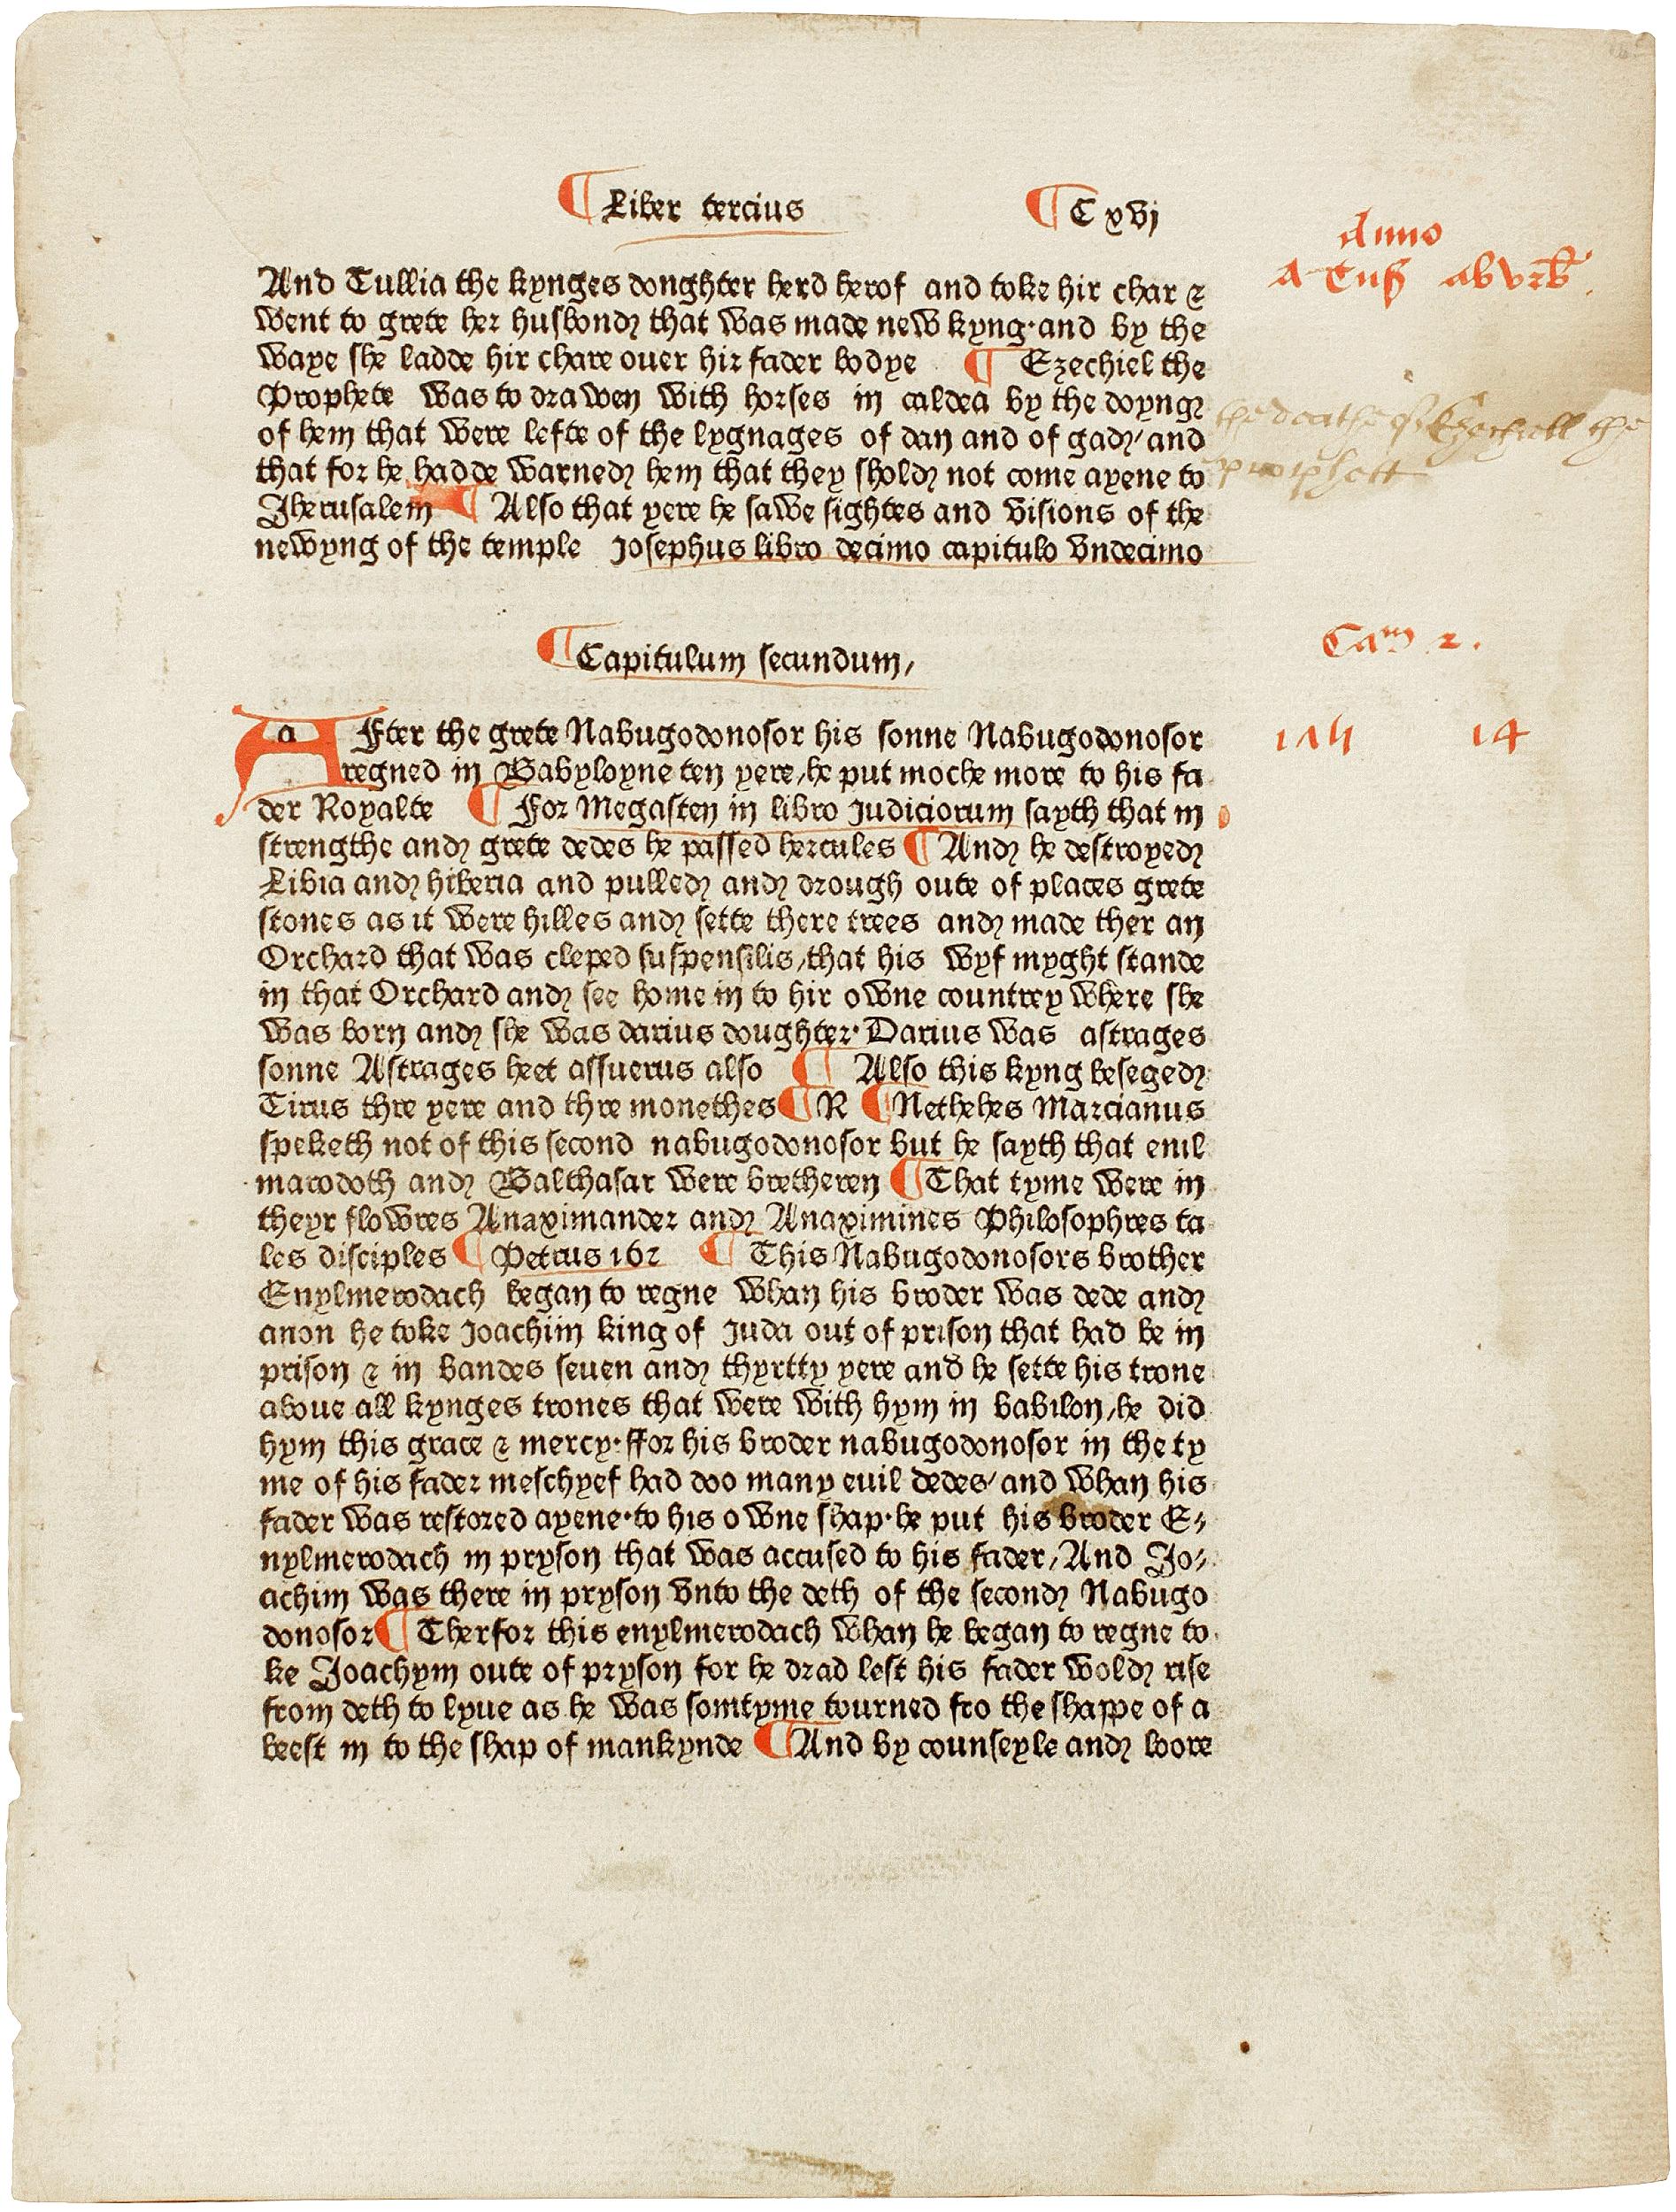 ¶ Liber tercius ¶ C xvj
Anno
A Tnſ ab vrb̄.
And Tullia the kynges donghter herd herof and toke hir char &
went to grete her husbond that was made new kyng· and by the
waye she ladde hir chare ouer hir fader bodye ¶ Ezechiel the
Prophete was to drawen with horses in caldea by the doyng
of hem that were lefte of the lygnages of dan and of gad/ and
that for he hadde warned hem that they shold not come ayene to
Jherusalem ¶ Also that yere he sawe sightes and visions of the
newyng of the temple Josephus libro decimo capitulo vndecimo
the deathe of Ezechiell the
prophett
¶ Capitulum secundum,
Cam 2.
AFter the grete Nabugodonosor his sonne Nabugodonosor
14
regned in Babyloyne ten yere, he put moche more to his fa
der Royalte ¶ For Megasten in libro Judiciorum sayth that in
strengthe and grete dedes he passed hercules ¶ And he destroyed
Libia and hiberia and pulled and drough oute of places grete
stones as it were hilles and sette there trees and made ther an
Orchard that was cleped suspensilis, that his wyf myght stande
in that Orchard and see home in to hir owne countrey where she
was born and she was darius doughter· Darius was astrages
sonne Astrages heet assuerus also ¶ Also this kyng beseged
Tirus thre yere and thre monethes ¶ R ¶ Netheles Marcianus
speketh not of this second nabugodonosor but he sayth that enil
marodoth and Balthasar were bretheren ¶ That tyme were in
theyr flowres Anaximander and Anaximines Philosophres ta
les disciples ¶ Petrus 162 ¶ This Nabugodonosors brother
Enylmerodach began to regne whan his broder was dede and
anon he toke Joachim king of Juda out of prison that had be in
prison & in bandes seuen and thyrtty yere and he sette his trone
aboue all kynges trones that were with hym in babilon, he did
hym this grace & mercy· ffor his broder nabugodonosor in the ty
me of his fader meschyef had doo many euil dedes/ and whan his
fader was restored ayene· to his owne shap· he put his broder E⸗
nylmerodach in pryson that was accused to his fader, And Jo⸗
achim was there in pryson vnto the deth of the second Nabugo
donosor ¶ Therfor this enylmerodach whan he began to regne to
ke Joachym oute of pryson for he drad lest his fader wold rise
from deth to lyue as he was somtyme tourned fro the shappe of a
beest in to the shap of mankynde ¶ And by counseyle and loore